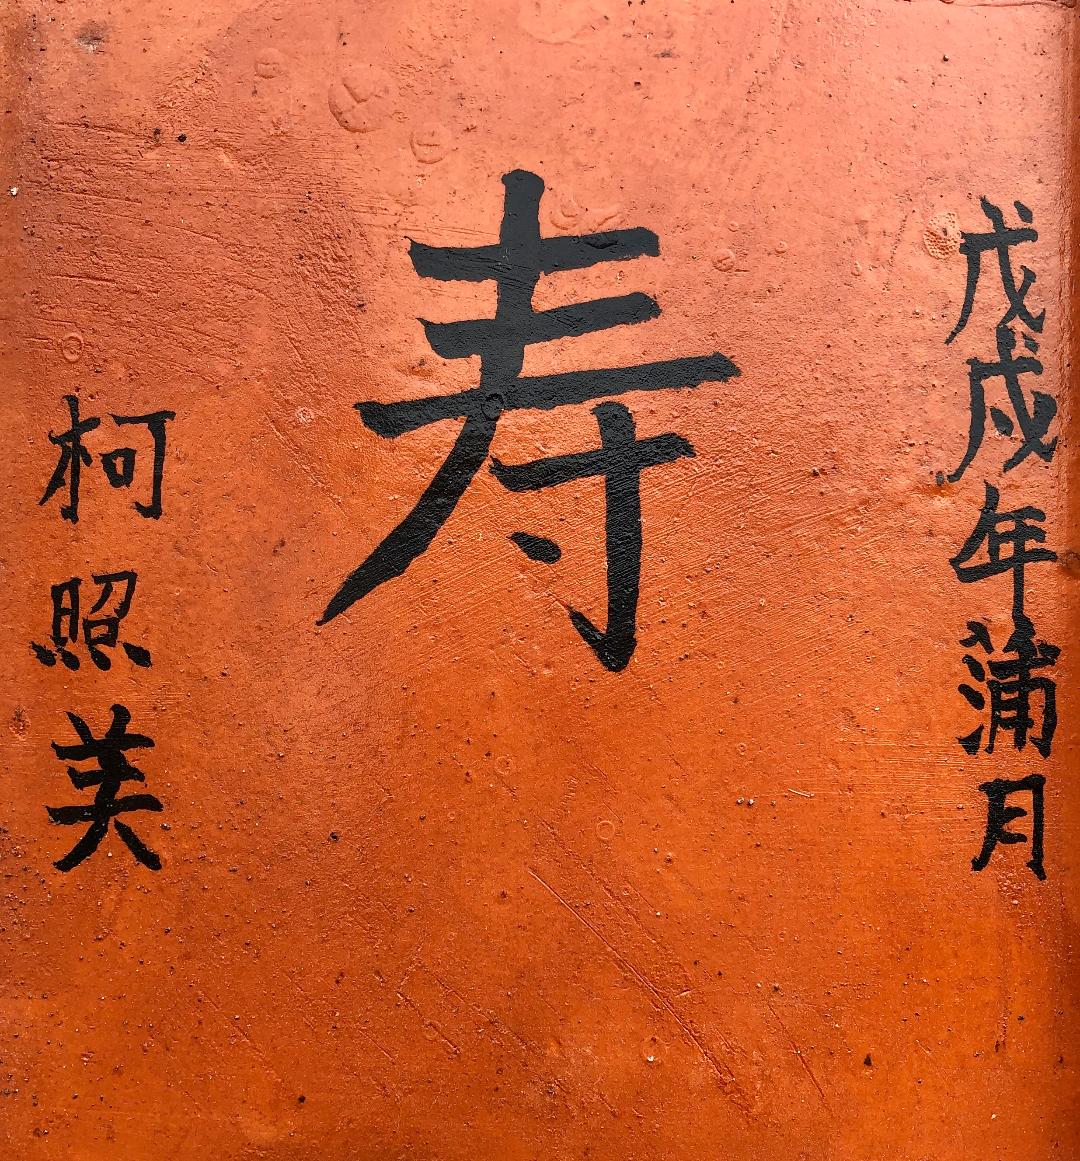 戊戌年蒲月
寿
柯照美